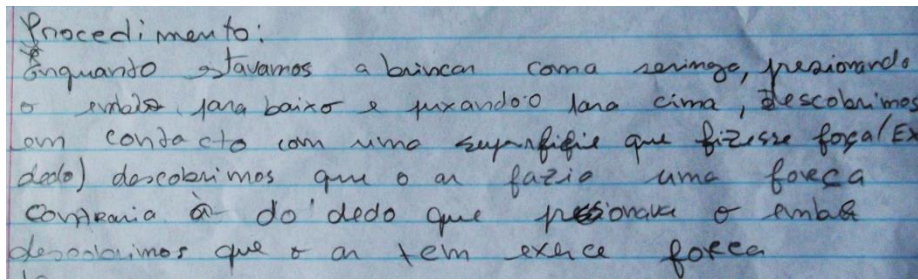 Procedimento:
Enquanto estavamos a brincar coma seringa, presionando
o embolo para baixo e puxando-o para cima, descobrimos
em contacto com uma superfifie que fizesse força (Ex
dedo) descobrimos que o ar fazia uma força
contraria à do dedo que pressionava o
descobrimos que o ar tem exerce força